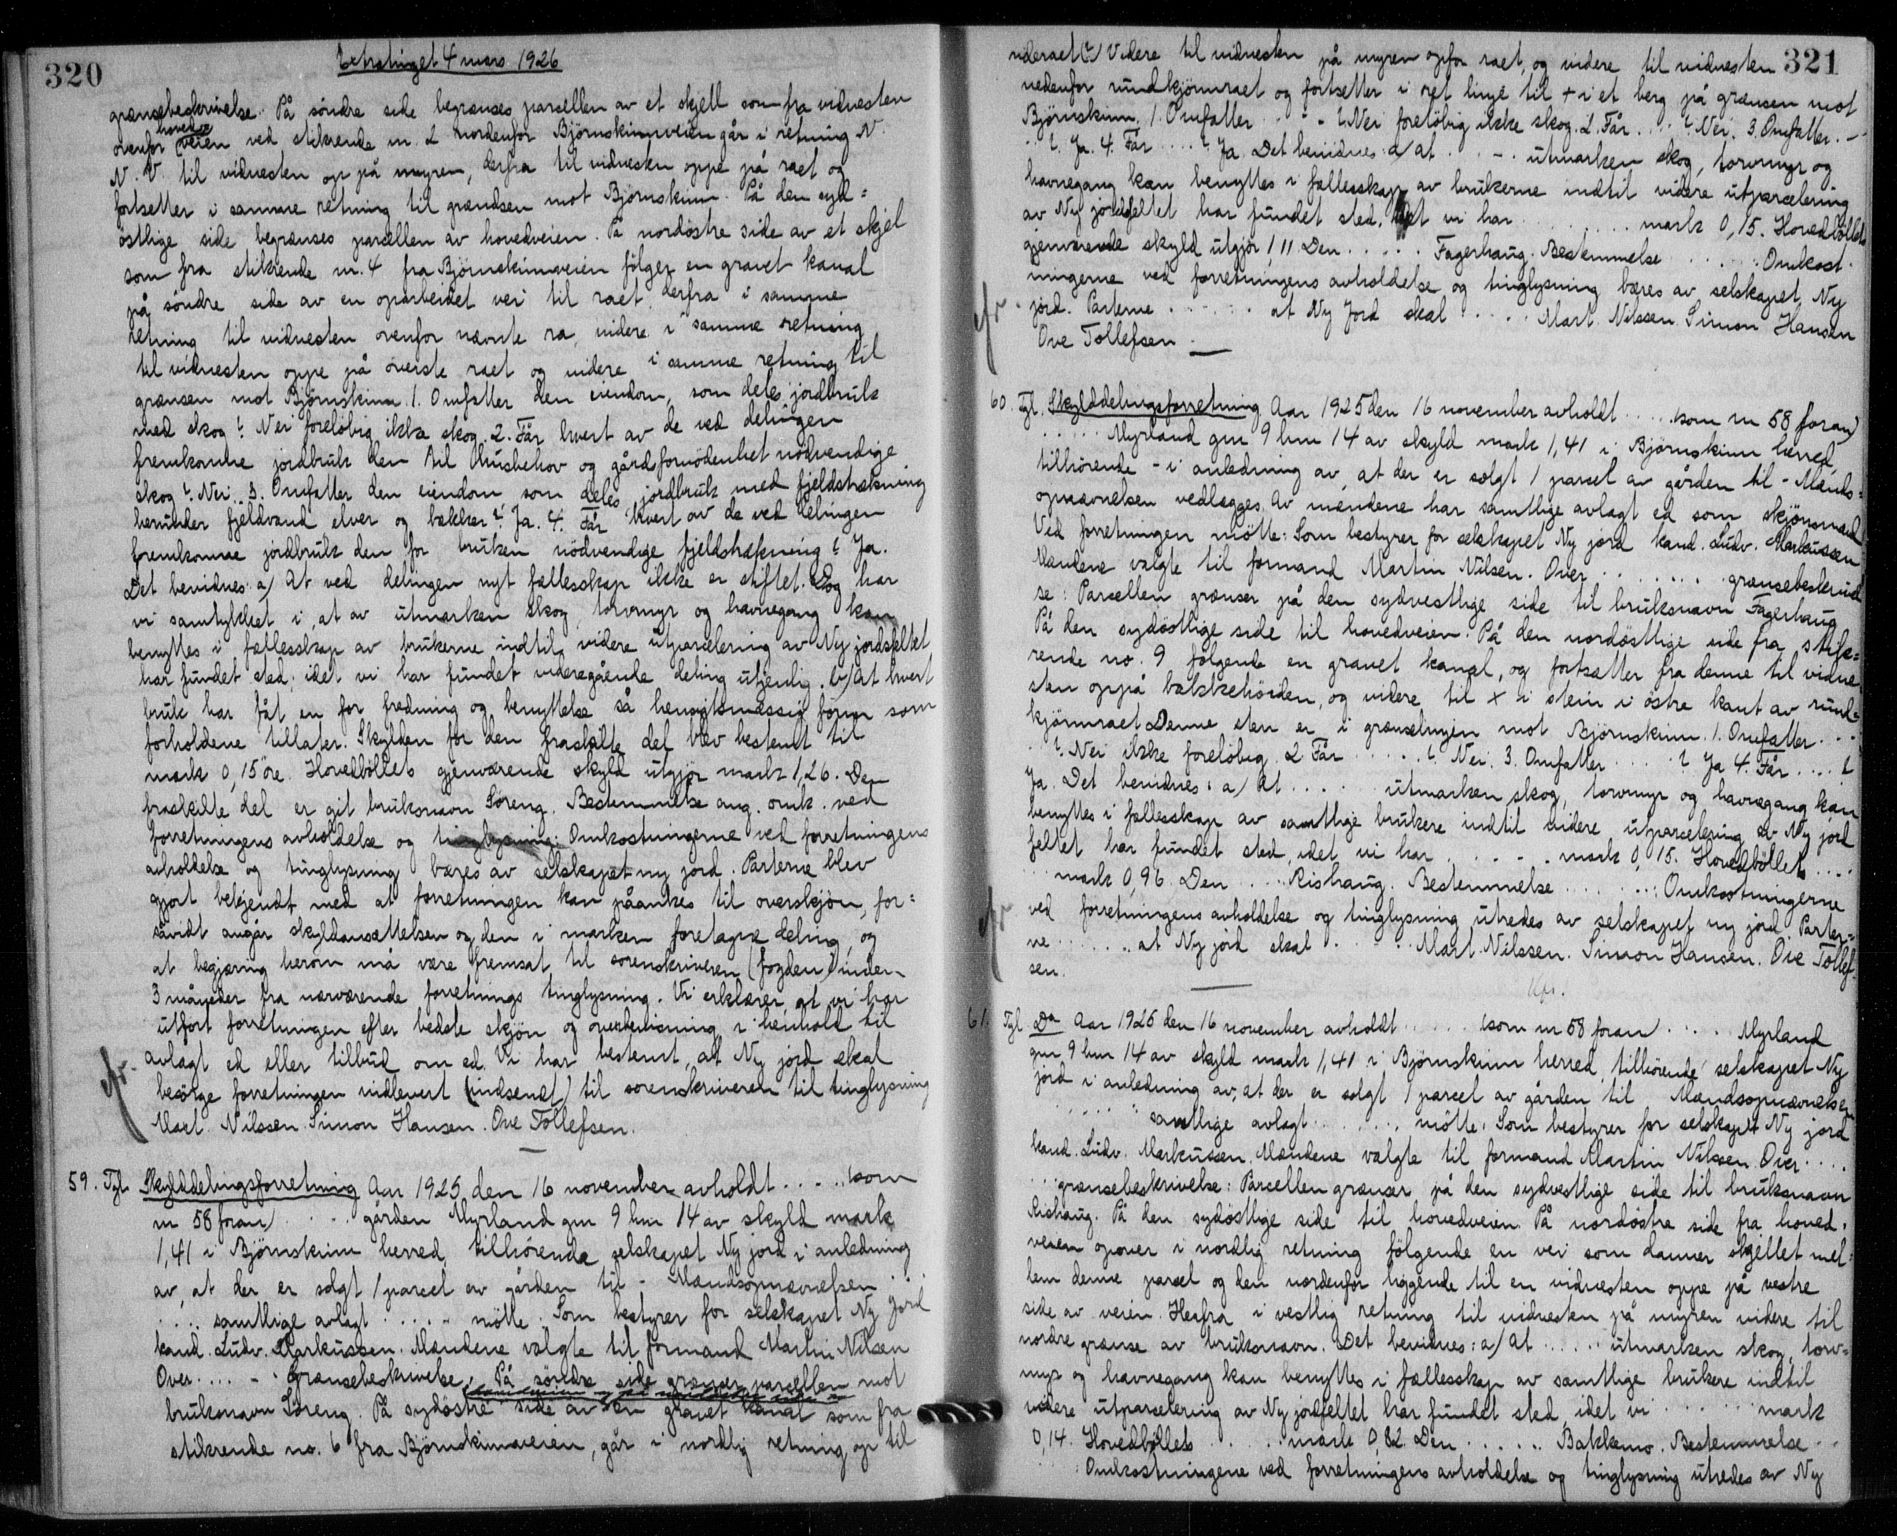 320
Extratinget 4 mars 1926
grænsebeskrivelse. På söndre side begrænses parcellen av et skjell som fra vidnesten
ovenfor hovedveien ved stikrende nr. 2 nordenfor Björnskinnveien går i retning N
N. V. til vidnesten op på myren, derfra til vidnesten oppe på raet og
fortsetter i samme retning til grændsen mot Björnskinn. På den syd=
östlige side begrænses parcellen av hovedveien. På nordöstre side av et skjel
som fra stikrende nr. 4 fra Björnskinnveien fölger en gravet kanal
på söndre side av en oparbeidet vei til raet, derfra i samme
retning til vidnesten ovenfor nævnte ra, videre i samme retning
til vidnesten oppe på överste raet og videre i samme retning til
grænsen mot Björnskinn. 1. Omfatter den eiendom, som deles jordbruk
med skog? Nei foreløbig ikke skog. 2. Får hvert av de ved delingen
fremkomne jordbruk den til husbehov og gårdsfornödenhet nödvendige
skog? Nei. 3. Omfatter den eiendom som deles, jordbruk med fjeldstrækning
herunder fjeldvand elver og bækker? Ja. 4. Får hvert av de ved delingen
fremkomne jordbruk den for bruken nödvendige fjeldstrækning? Ja.
Det bevidnes: a) At ved delingen nyt fællesskap ikke er stiftet. Dog har
vi samtykket i, at av utmarken skog, torvmyr og havnegang kan
benyttes i fællesskap av brukerne indtil videre utparcelering av Ny jordsfeltet
har fundet sted, idet vi har fundet videregående deling utjenlig. b) At hvert
bruk har fåt en for fredning og benyttelse så hensigtsmæssig form som
forholdene tillater. Skylden for den fraskilte del blev bestemt til
mark 0,15 öre. Hovedböllets gjenværende skyld utgjör mark 1,26. Den
fraskilte del er git bruksnavn Söreng. Bestemmelse ang. omk. ved
forretningens avholdelse og tinglysning: Omkostningerne ved forretningens
avholdelse og tinglysning bæres av selskapet ny jord. Parterne blev
gjort bekjendt med at forretningen kan påankes til overskjön, for=
såvidt angår skyldansættelsen og den i marken foretagne deling, og
at begjæring herom må være fremsat til sorenskriveren (fogden) inden
3 måneder fra nærværende forretnings tinglysning. Vi erklærer, at vi har
utfört forretningen efter bedste skjön og overbevisning i henhold til
avlagt ed eller tilbud om ed. Vi har bestemt, at Ny jord skal
besörge forretningen indlevert (indsendt) til sorenskriveren til tinglysning
Mart. Nilssen. Simon Hansen. Ove Tollefsen.
59. Tgl. Skylddelingsforretning Aar 1925 den 16 november avholdt . . . . (som
nr 58 foran) . . . . gården Myrland gnr 9 bnr 14 av skyld mark
1,41 i Björnskinn herred, tilhörende selskapet Ny jord i anledning
av, at der er solgt 1 parcel av gården til - Mændsopnævnelsen . . .
. . . . samtlige avlagt . . . . . mötte. Som bestyrer for selskapet Ny jord
kand. Ludv. Markussen. Mændene valgte til formand Martin Nilsen
Over. . . . . Grænsebeskrivelse. På söndre side grænser parcellen mot
bruksnavn Söreng. På sydöstre side av en gravet kanal som fra
stikrende no. 6 fra Björnskinnveien, går i nordlig retning op til
321
nderaet(?) Videre til vidnesten på myren opfor raet, og videre til vidnesten
nedenfor rundkjönnraet og fortsetter i ret linje til + i et berg på grænsen mot
Björnskinn. 1. Omfatter . . . ? Nei foreløbig ikke skog. 2. Får . . . ? Nei. 3. Omfatter. .
. . ? Ja. 4. Får . . . . ? Ja. Det bevidnes: a) at . . . . utmarken skog, torvmyr og
havnegang kan benyttes i fællesskap av brukerne indtil videre utparcelering
av Ny jordsfeltet har fundet sted. idet vi har . . . . . . . mark 0,15. Hovedböllets
gjenværende skyld utgjör 1,11 Den . . . . . Fagerhaug. Bestemmelse . . . . . Omkost-
ningerne ved forretningens avholdelse og tinglysning bæres av selskapet Ny
jord. Parterne . . . . . . at Ny Jord skal . . . . Mart. Nilssen. Simon Hansen
Ove Tollefsen.
60. Tgl. Skylddelingsforretning Aar 1925 den 16 november avholdt . . . . (som nr 58 foran)
. . . . . Myrland gnr 9 bnr 14 av skyld mark 1,41 i Björnskinn herred,
tilhörende - i anledning av, at der er solgt 1 parcel av gården til - Mænds=
opnævnelsen vedlægges. Av mændene har samtlige avlagt ed som skjönsmænd.
Ved forretningen mötte: Som bestyrer for selskapet Ny jord kand. Ludv. Markussen
Mændene valgte til formand Martin Nilsen. Over . . . . . . . . grænsebeskrivel
se: Parcellen grænser på den sydvestlige side til bruksnavn Fagerhaug
På den sydöstlige side til hovedveien. På den nordöstlige side fra stik=
rende no. 9 fölgende en gravet kanal, og fortsætter fra denne til vidne
sten oppå bakkehöiden, og videre til x i stein i östre kant av rund=
kjönnraet. Denne sten er i grænselinjen mot Björnskinn. 1. Omfatter . . .
. . ? Nei ikke foreløbig. 2 Får . . . . . ? Nei. 3. Omfatter . . . . . ? Ja 4. Får . . . . ?
Ja. Det bevidnes: a) At . . . . . utmarken skog, torvmyr og havnegang kan
benyttes i fællesskap av samtlige brukere indtil videre utparcelering av Ny jord
feltet har fundet sted, idet vi har . . . . . . mark 0,15. Hovedböllets . . . .
. . mark 0,96. Den . . . . Rishaug. Bestemmelse . . . . . . . : Omkostningerne
ved forretningens avholdelse og tinglysning utredes av selskapet ny jord. Parter=
ne . . . . . . at Ny jord skal . . . . . Mart. Nilssen. Simon Hansen. Ove Tollef
sen.
61. Tgl. Do Aar 1925 den 16 november avholdt . . . . . (som nr 58 foran) . . . . . Myrland
gnr 9 bnr 14 av skyld mark 1,41 i Björnskinn herred, tilhörende selskapet Ny
jord i anledning av, at der er solgt 1 parcel av gården til Mændsopnævnelsen
. . . . . . . samtlige avlagt . . . . . . . mötte: Som bestyrer for selskapet Ny jord
kand. Ludv. Markussen. Mændene valgte til formand Martin Nilsen. Over . . . .
. . . grænsebeskrivelse: Parcellen grænser på den sydvestlige side til bruksnavn
Rishaug. På den sydöstlige side til hovedveien. På nordöstre side fra hoved=
veien opover i nordlig retning fölgende en vei som danner skjellet mel=
lem denne parcel og den nordenfor liggende til en vidnesten oppe på vestre
side av veien. Herfra i vestlig retning til vidnesten på myren videre til
nordre grænse av bruksnavn. Det bevidnes: a) At . . . . . . utmarken skog, torv=
myr og havnegang kan benyttes i fællesskap av samtlige brukere indtil
videre utparcelering av Ny jordfeltet har fundet sted, idet vi . . . . . . . mark
0,14. Hovedböllets . . . . . mark 0,82. Den . . . . . . Bakkemo. Bestemmelse . .
. . : Omkostningene ved forretningens avholdelse og tinglysning utredes av Ny